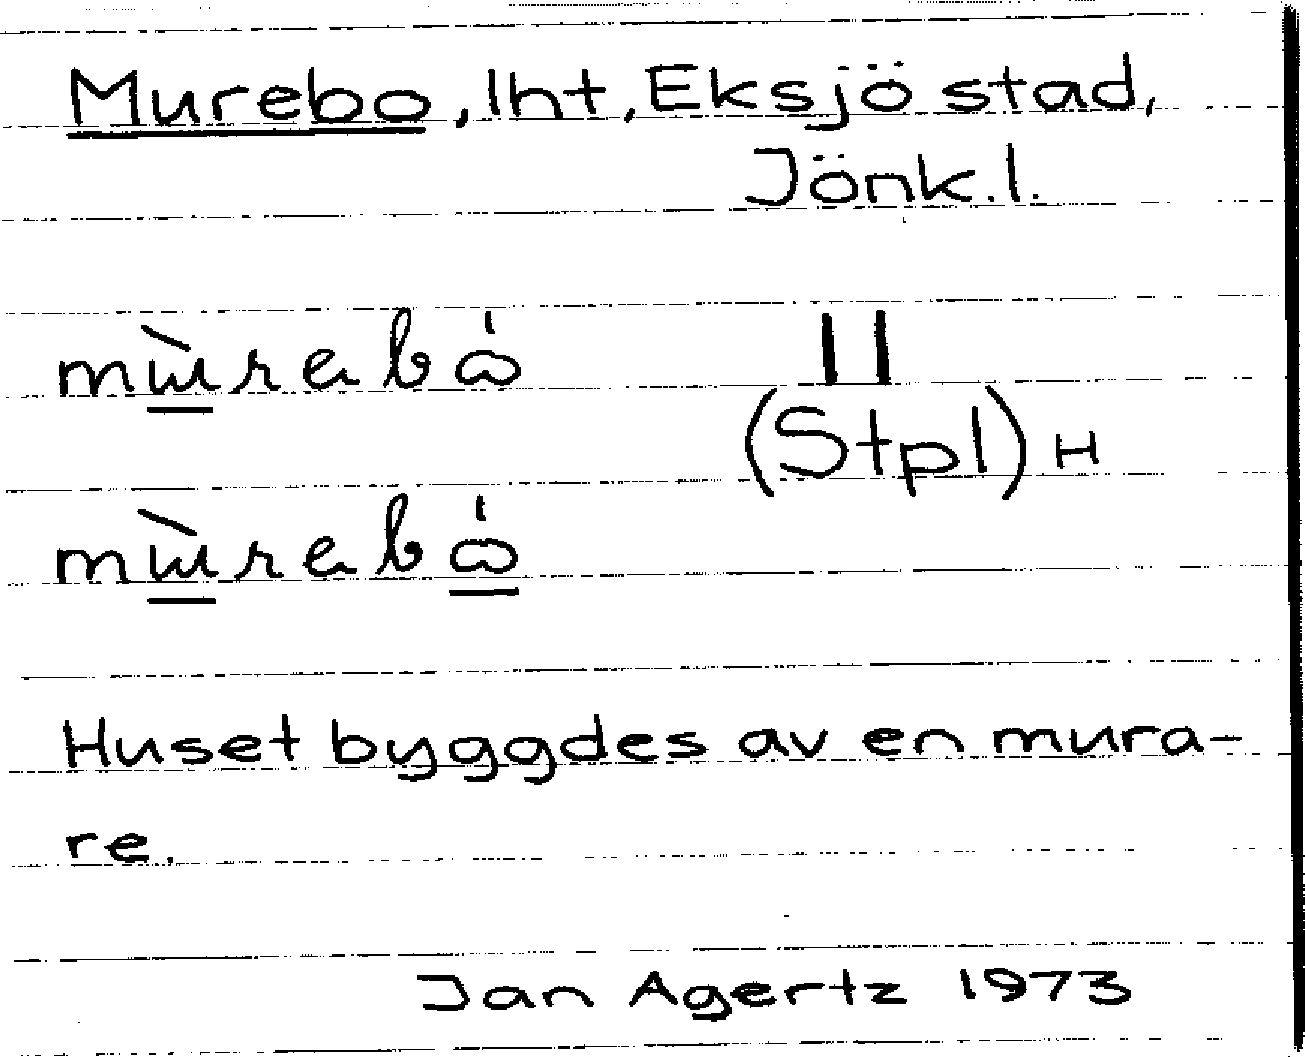 Murebo, lht, Eksjö stad,
Jönk.l.
mùrabó ||
(Stpl) H
mùrabó
Huset byggdes av en mura-
re.
Jan Agertz 1973